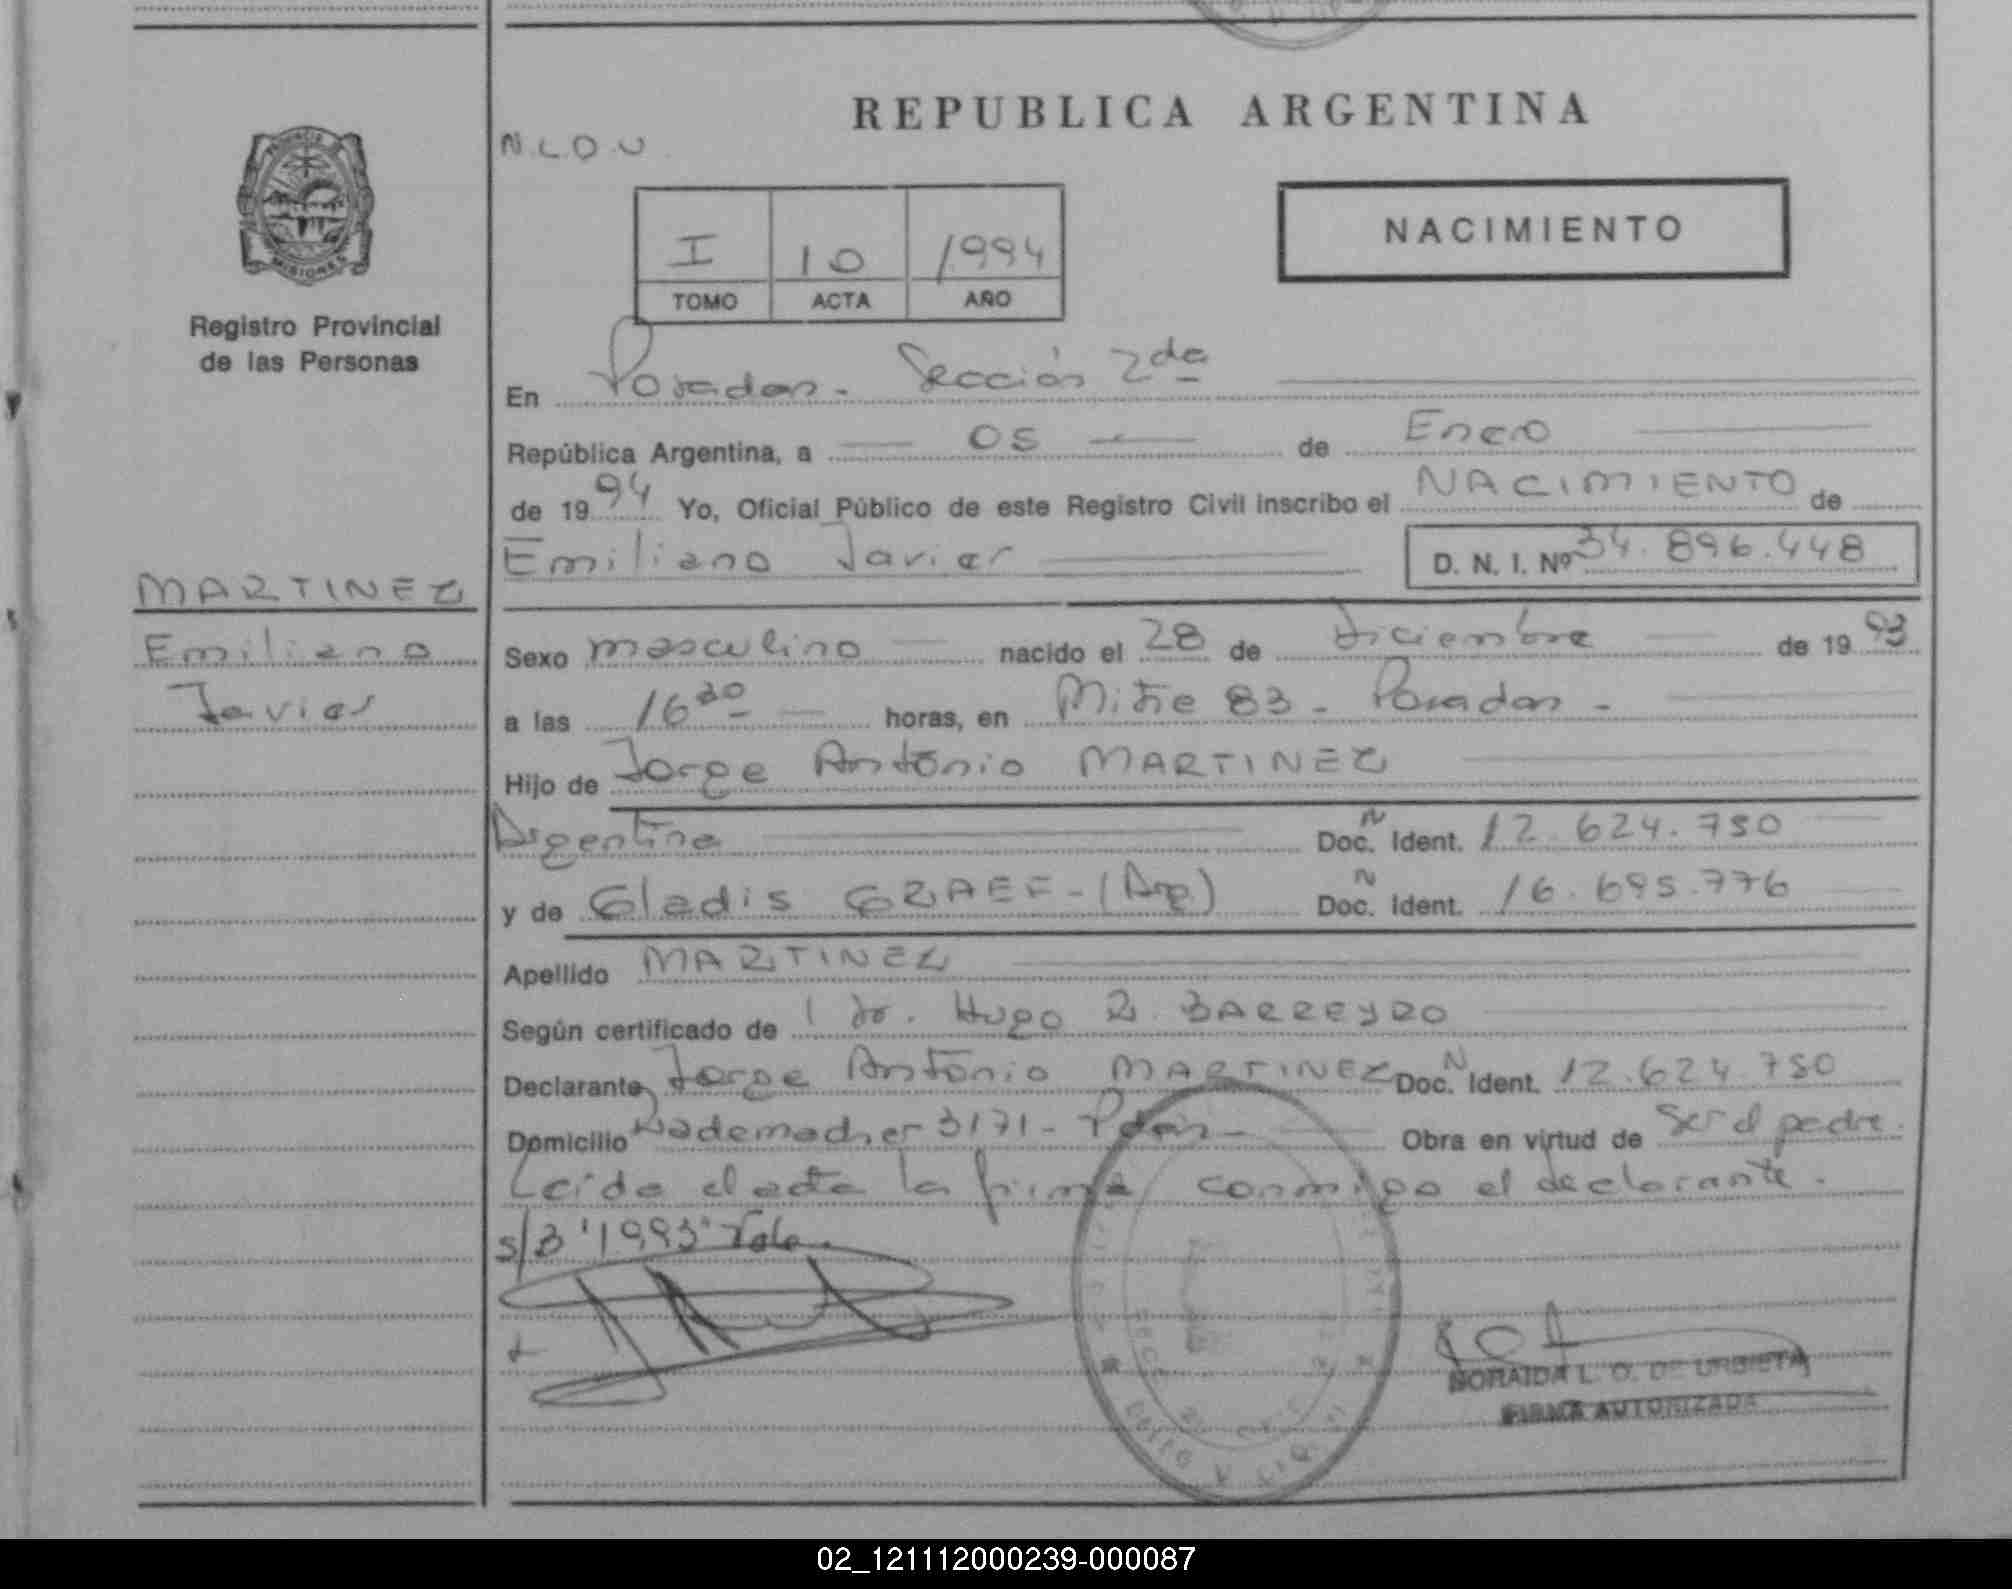 REPUBLICA ARGENTINA
N.L.D.U
PROVINCIA
MISIONES
Registro Provincial
de las Personas
I 10 1994
TOMO ACTA AÑO
NACIMIENTO
En Posadas - Sección 2da
República Argentina, a 05 de Enero
de 1994 Yo, Oficial Público de este Registro Civil inscribo el NACIMIENTO de
Emiliano Javier D. N. I. Nº 34.896.448
MARTINEZ
Emiliano
Javier
Sexo masculino nacido el 28 de diciembre de 1993
a las 16 30 horas, en Mitre 83 - Posadas -
Hijo de Jorge Antonio MARTINEZ
Argentina Doc. N Ident. 12.624.750
y de Gladis GRAEF - (Arg) Doc. N Ident. 16.695.776
Apellido MARTINEZ
Según certificado de Dr. Hugo R. BARREYRO
Declarante Jorge Antonio MARTINEZ Doc. N Ident. 12.624.750
Domicilio Rademacher 3171 - Pdas - Obra en virtud de ser el padre.
Leída el acta la firma conmigo el declarante.
s/B "1993" Vale.
NORAIDA L. O. DE URBIETA
FIRMA AUTORIZADA
02_121112000239-000087